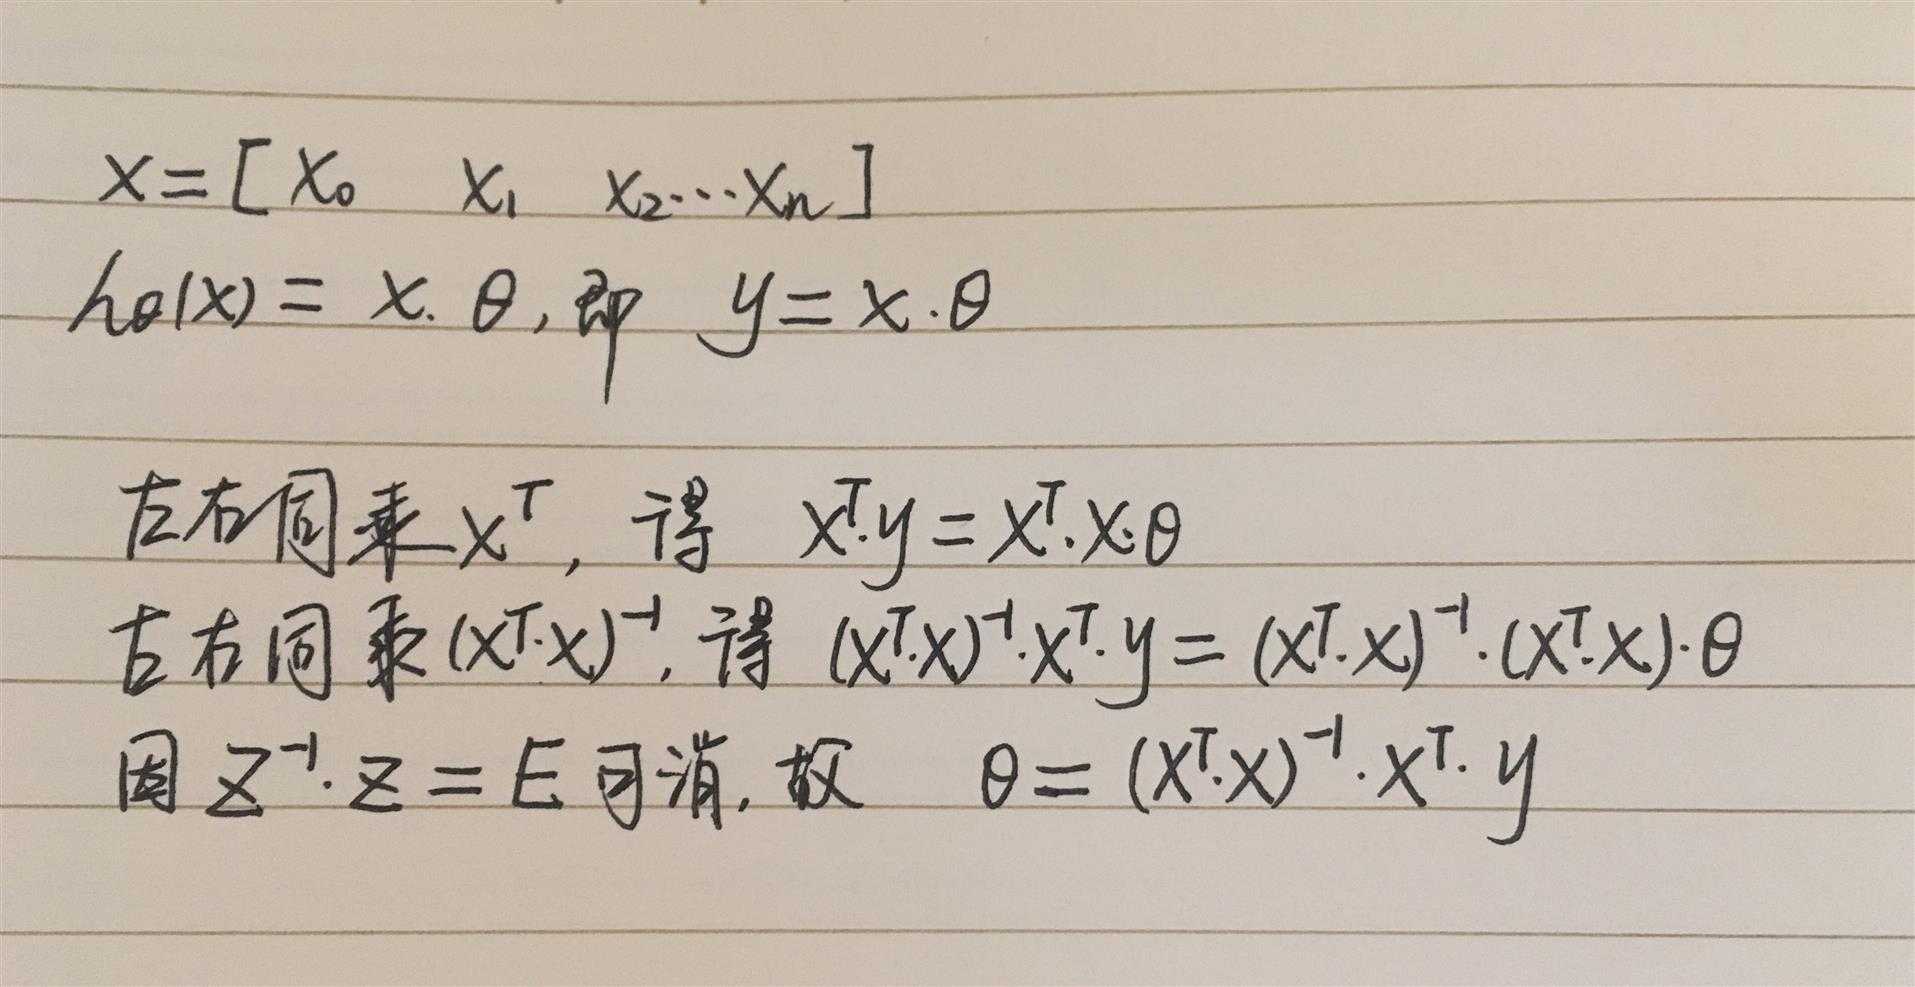 X = [ X₀ X₁ X₂...Xₙ ]
hθ(X) = X·θ, 即 y = X·θ
左右同乘 Xᵀ, 得 Xᵀ·y = Xᵀ·X·θ
左右同乘 (Xᵀ·X)⁻¹, 得 (Xᵀ·X)⁻¹·Xᵀ·y = (Xᵀ·X)⁻¹·(Xᵀ·X)·θ
因 Z⁻¹·Z = E 可消, 故 θ = (Xᵀ·X)⁻¹·Xᵀ·y